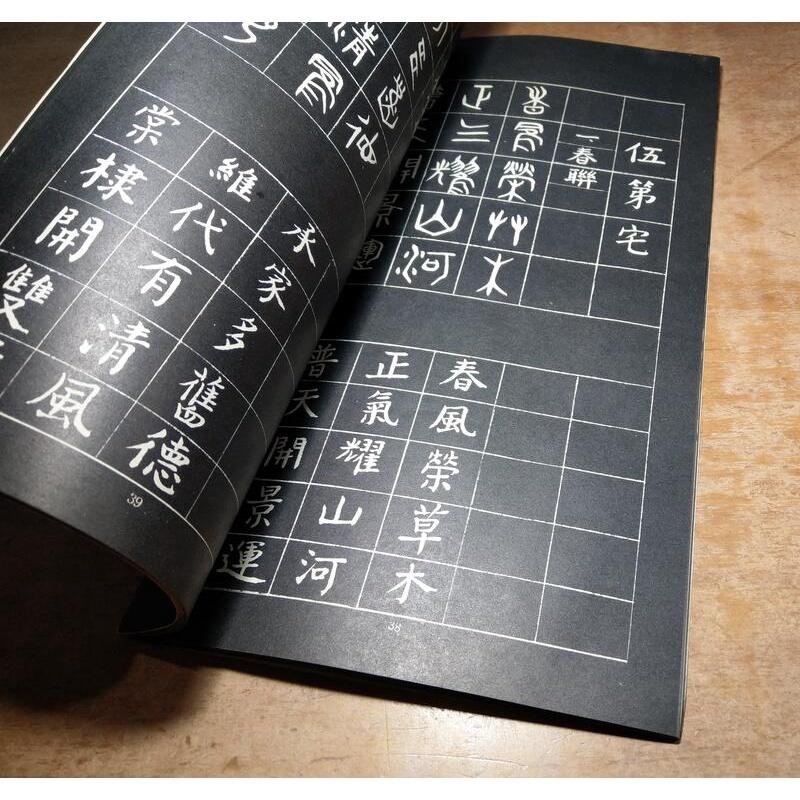 伍第宅
一、春聯
春風榮艸木
正气耀山河
開景運
春風榮草木
正氣耀山河
普天開景運
38
承家多舊德
維代有清風
棠棣開雙
39